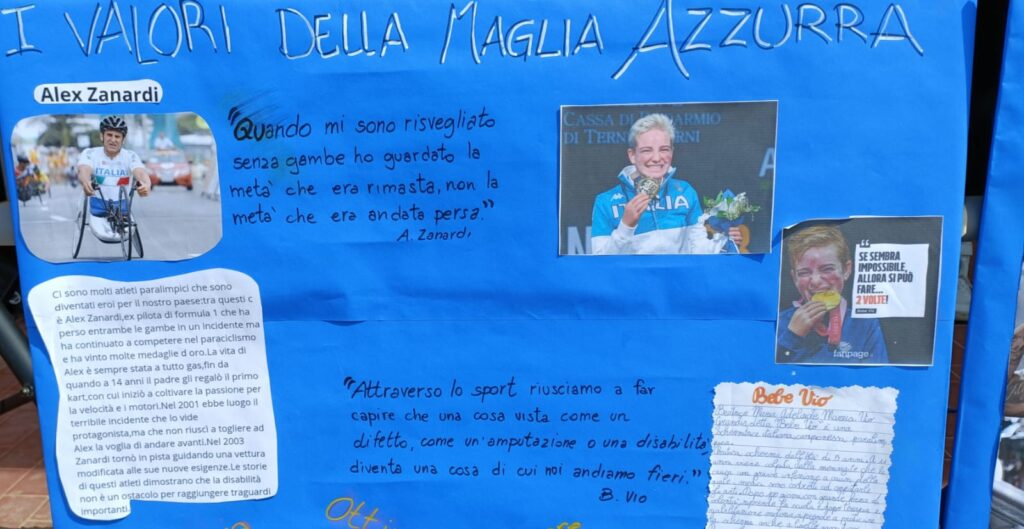 I VALORI DELLA MAGLIA AZZURRA
Alex Zanardi
ITALIA
"Quando mi sono risvegliato
senza gambe ho guardato la
metà che era rimasta, non la
metà che era andata persa."
A. Zanardi
CASSA DI
DI TERNI
ITALIA
"
SE SEMBRA
IMPOSSIBILE,
ALLORA SI PUÒ
FARE...
2 VOLTE!
Bebe Vio
fanpage
Ci sono molti atleti paralimpici che sono
diventati eroi per il nostro paese:tra questi c
è Alex Zanardi,ex pilota di formula 1 che ha
perso entrambe le gambe in un incidente ma
ha continuato a competere nel paraciclismo
e ha vinto molte medaglie d oro.La vita di
Alex è sempre stata a tutto gas,fin da
quando a 14 anni il padre gli regalò il primo
kart,con cui iniziò a coltivare la passione per
la velocità e i motori.Nel 2001 ebbe luogo il
terribile incidente che lo vide
protagonista,ma che non riuscì a togliere ad
Alex la voglia di andare avanti.Nel 2003
Zanardi tornò in pista guidando una vettura
modificata alle sue nuove esigenze.Le storie
di questi atleti dimostrano che la disabilità
non è un ostacolo per raggiungere traguardi
importanti.
"Attraverso lo sport riusciamo a far
capire che una cosa vista come un
difetto, come un'amputazione o una disabilità,
diventa una cosa di cui noi andiamo fieri."
B. Vio
Bebe Vio
Beatrice Maria Adelaide Marzia Vio
Grandis detta Bebe Vio è una
schermitrice italiana, campionessa